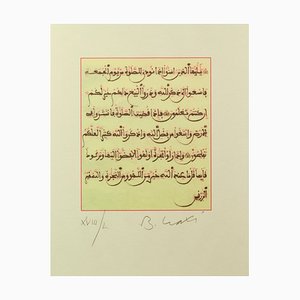 يأيها الذين ءامنوا إذا نودي للصلوة من يوم الجمعة
فاسعوا إلى ذكر الله وذروا البيع ذلكم خير لكم
إن كنتم تعلمون فإذا قضيت الصلوة فانتشروا في
الأرض وابتغوا من فضل الله واذكروا الله كثيرا لعلكم
تفلحون وإذا رأوا تجرة أو لهوا انفضوا إليها وتركوك
قائما قل ما عند الله خير من اللهو ومن التجرة والله خير
الرزقين
XVIII/L B.